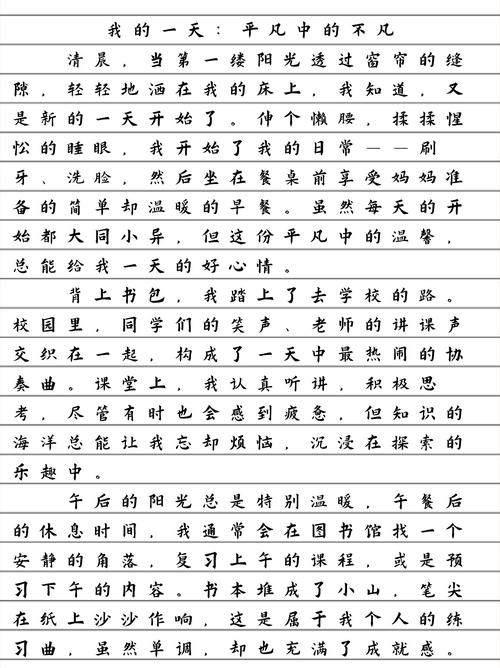 我的一天：平凡中的不凡
清晨，当第一缕阳光透过窗帘的缝
隙，轻轻地洒在我的床上，我知道，又
是新的一天开始了。伸个懒腰，揉揉惺
忪的睡眼，我开始了我的日常——刷
牙、洗脸，然后坐在餐桌前享受妈妈准
备的简单却温暖的早餐。虽然每天的开
始都大同小异，但这份平凡中的温馨，
总能给我一天的好心情。
背上书包，我踏上了去学校的路。
校园里，同学们的笑声、老师的讲课声
交织在一起，构成了一天中最热闹的协
奏曲。课堂上，我认真听讲，积极思
考，尽管有时也会感到疲惫，但知识的
海洋总能让我忘却烦恼，沉浸在探索的
乐趣中。
午后的阳光总是特别温暖，午餐后
的休息时间，我通常会在图书馆找一个
安静的角落，复习上午的课程，或是预
习下午的内容。书本堆成了小山，笔尖
在纸上沙沙作响，这是属于我个人的练
习曲，虽然单调，却也充满了成就感。